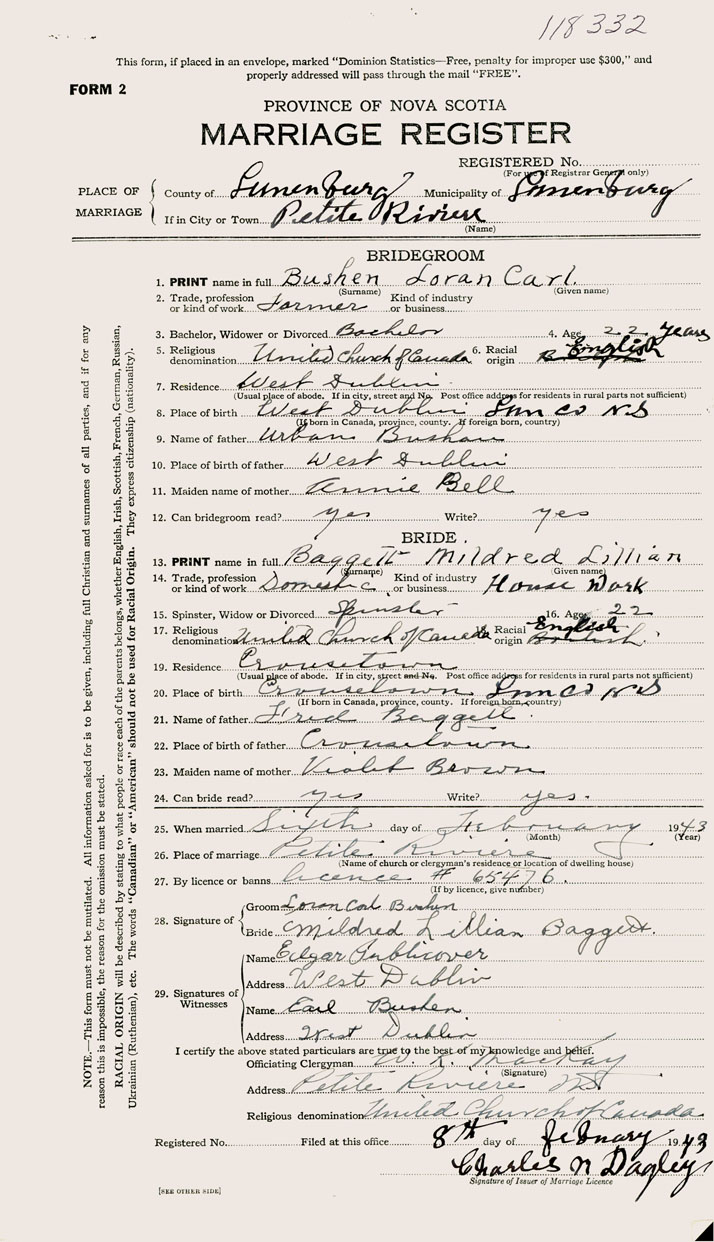 118332
This form, if placed in an envelope, marked "Dominion Statistics—Free, penalty for improper use $300," and
properly addressed will pass through the mail "FREE".
FORM 2
PROVINCE OF NOVA SCOTIA
MARRIAGE REGISTER
REGISTERED No.
(For use of Registrar General only)
PLACE OF MARRIAGE
County of Lunenburg Municipality of Lunenburg
If in City or Town Petite Riviere
(Name)
BRIDEGROOM
1. PRINT name in full Bushen Loran Carl
(Surname) (Given name)
2. Trade, profession or kind of work Farmer Kind of industry or business
3. Bachelor, Widower or Divorced Bachelor 4. Age 22 years
5. Religious denomination United Church of Canada 6. Racial origin English
7. Residence West Dublin
(Usual place of abode. If in city, street and No. Post office address for residents in rural parts not sufficient)
8. Place of birth West Dublin Lun Co N S
(If born in Canada, province, county. If foreign born, country)
9. Name of father Urban Bushen
10. Place of birth of father West Dublin
11. Maiden name of mother Annie Bell
12. Can bridegroom read? yes Write? yes
BRIDE.
13. PRINT name in full Baggett Mildred Lillian
(Surname) Given name)
14. Trade, profession or kind of work Domestic Kind of industry or business House Work
15. Spinster, Widow or Divorced Spinster 16. Age 22
17. Religious denomination United Church of Canada 18. Racial origin English British
19. Residence Crousetown
(Usual place of abode. If in city, street and No. Post office address for residents in rural parts not sufficient)
20. Place of birth Crousetown Lun Co N S
(If born in Canada, province, county. If foreign born, country)
21. Name of father Fred Baggett
22. Place of birth of father Crousetown
23. Maiden name of mother Violet Brown
24. Can bride read? yes Write? yes.
25. When married Sixth day of February 1943
(Month) (Year)
26. Place of marriage Petite Riviere
(Name of church or clergyman's residence or location of dwelling house)
27. By licence or banns licence # 65476.
(If by licence, give number)
28. Signature of
Groom Loran Carl Bushen
Bride Mildred Lillian Baggett.
29. Signatures of Witnesses
Name Edgar Publicover
Address West Dublin
Name Earl Bushen
Address West Dublin
I certify the above stated particulars are true to the best of my knowledge and belief.
Officiating Clergyman W. R. MacKay
(Signature)
Address Petite Riviere NS
Religious denomination United Church of Canada
Registered No. Filed at this office 8th day of february 1943
Charles N Dagley
Signature of Issuer of Marriage Licence
[SEE OTHER SIDE]
NOTE.—This form must not be mutilated. All information asked for is to be given, including full Christian and surnames of all parties, and if for any
reason this is impossible, the reason for the omission must be stated.
RACIAL ORIGIN will be described by stating to what people or race each of the parents belongs, whether English, Irish, Scottish, French, German, Russian,
Ukrainian (Ruthenian), etc. The words "Canadian" or "American" should not be used for Racial Origin. They express citizenship (nationality).